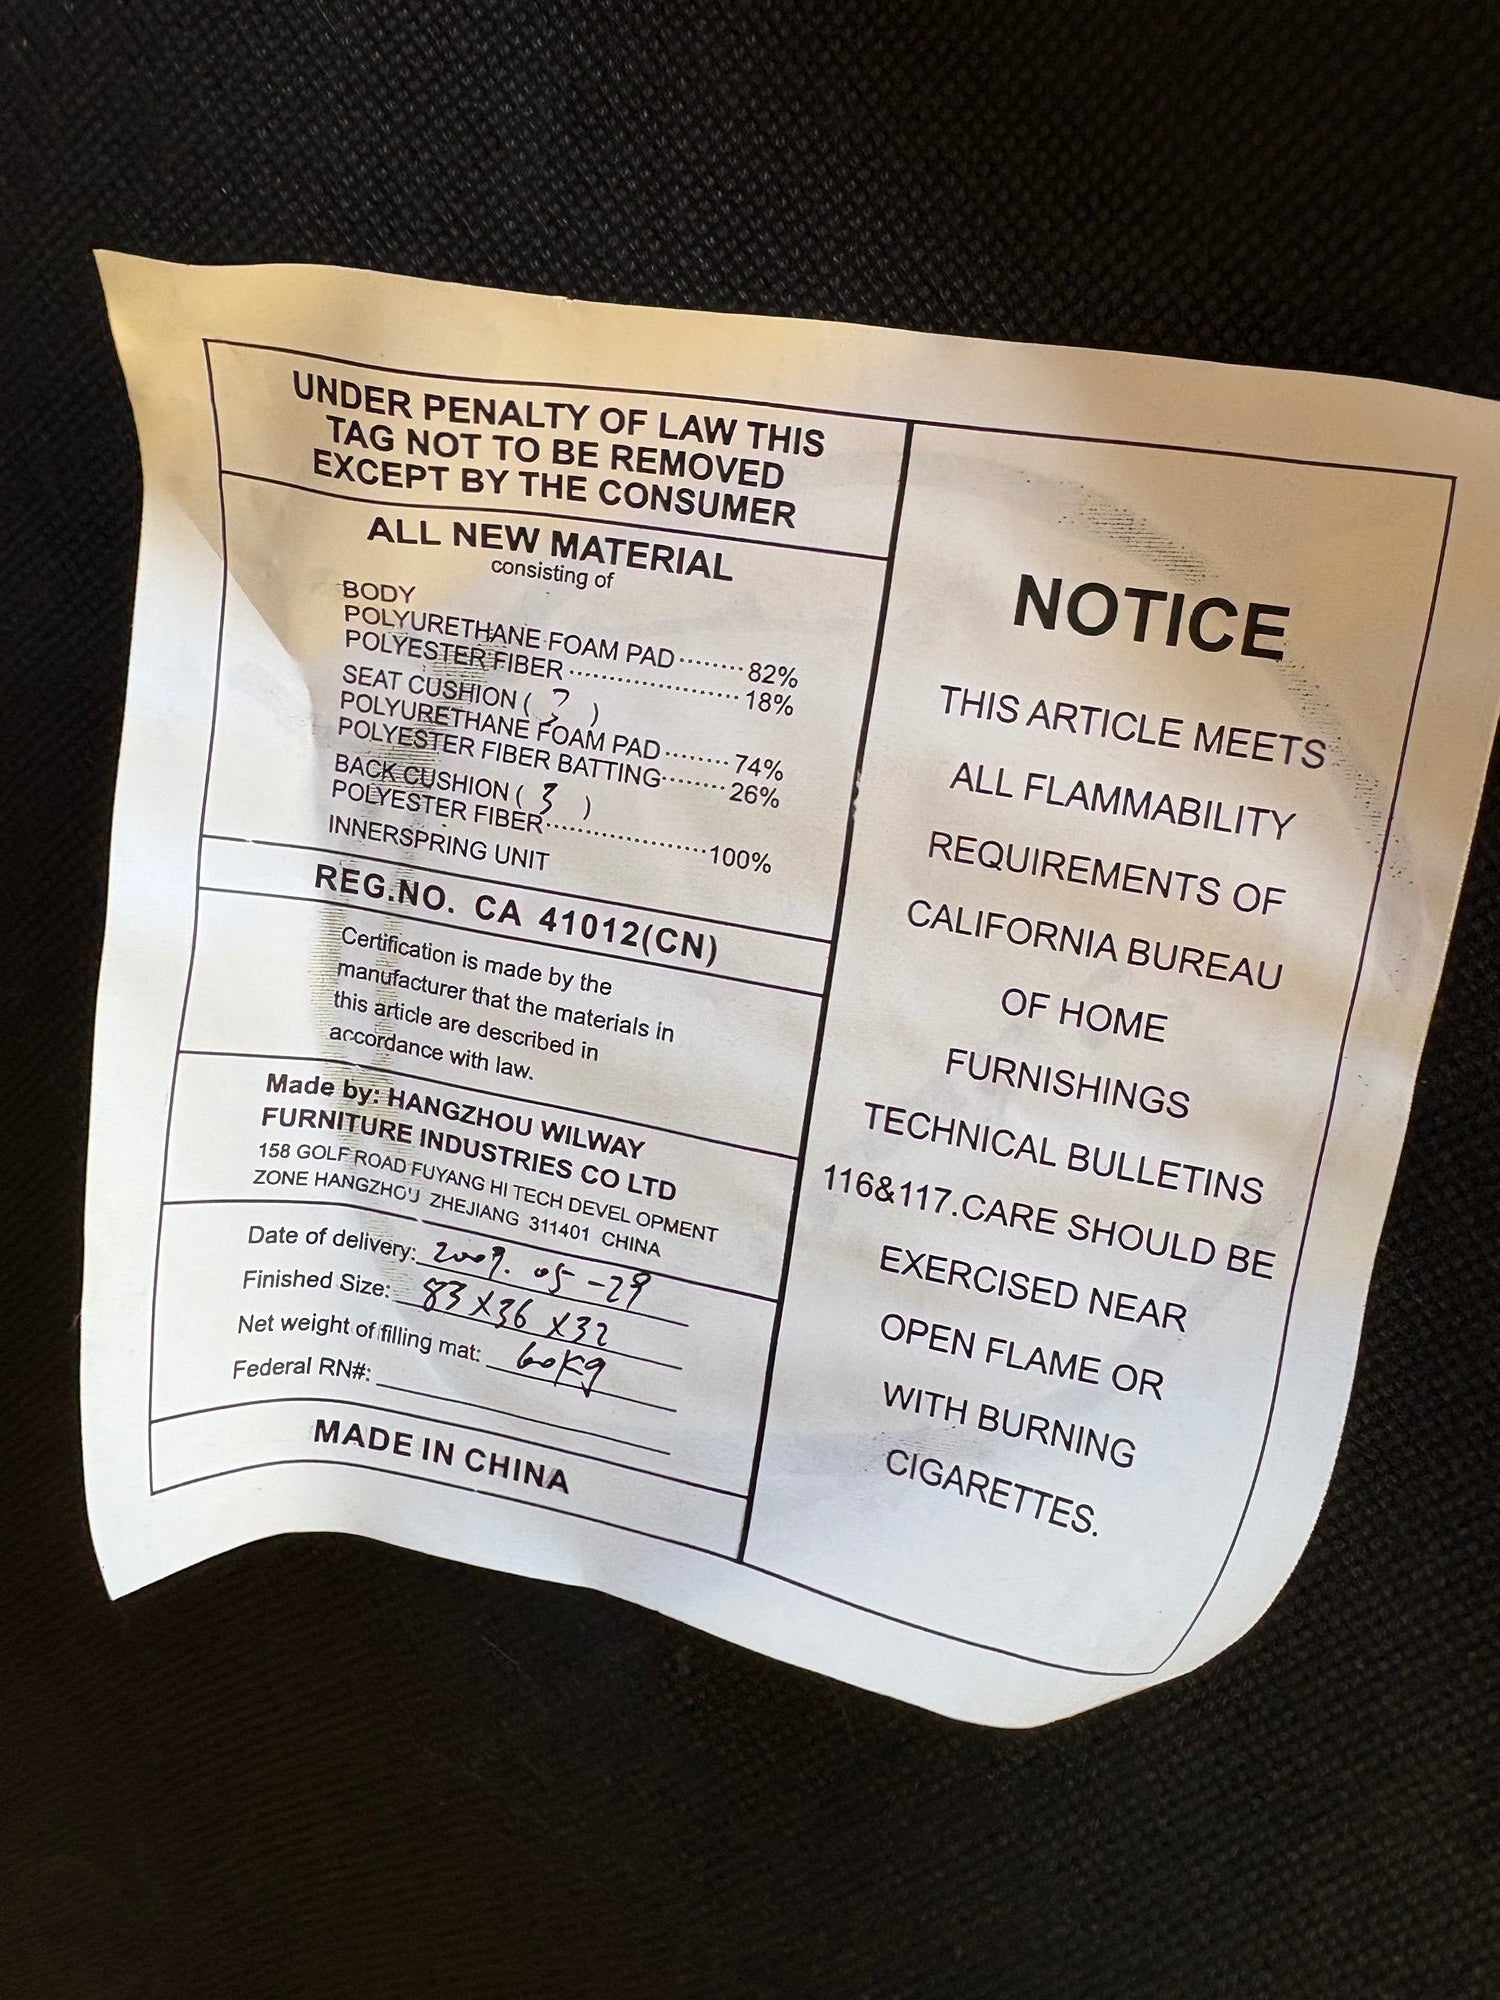 UNDER PENALTY OF LAW THIS
TAG NOT TO BE REMOVED
EXCEPT BY THE CONSUMER
ALL NEW MATERIAL
consisting of
BODY
POLYURETHANE FOAM PAD········82%
POLYESTER FIBER·····················18%
SEAT CUSHION ( 3 )
POLYURETHANE FOAM PAD········74%
POLYESTER FIBER BATTING·······26%
BACK CUSHION ( 3 )
POLYESTER FIBER····················100%
INNERSPRING UNIT
REG.NO. CA 41012(CN)
Certification is made by the
manufacturer that the materials in
this article are described in
accordance with law.
Made by: HANGZHOU WILWAY
FURNITURE INDUSTRIES CO LTD
158 GOLF ROAD FUYANG HI TECH DEVEL OPMENT
ZONE HANGZHOU ZHEJIANG 311401 CHINA
Date of delivery: 2009. 05 -29
Finished Size: 83 X 36 X 32
Net weight of filling mat: 60kg
Federal RN#:
MADE IN CHINA
NOTICE
THIS ARTICLE MEETS
ALL FLAMMABILITY
REQUIREMENTS OF
CALIFORNIA BUREAU
OF HOME
FURNISHINGS
TECHNICAL BULLETINS
116&117.CARE SHOULD BE
EXERCISED NEAR
OPEN FLAME OR
WITH BURNING
CIGARETTES.